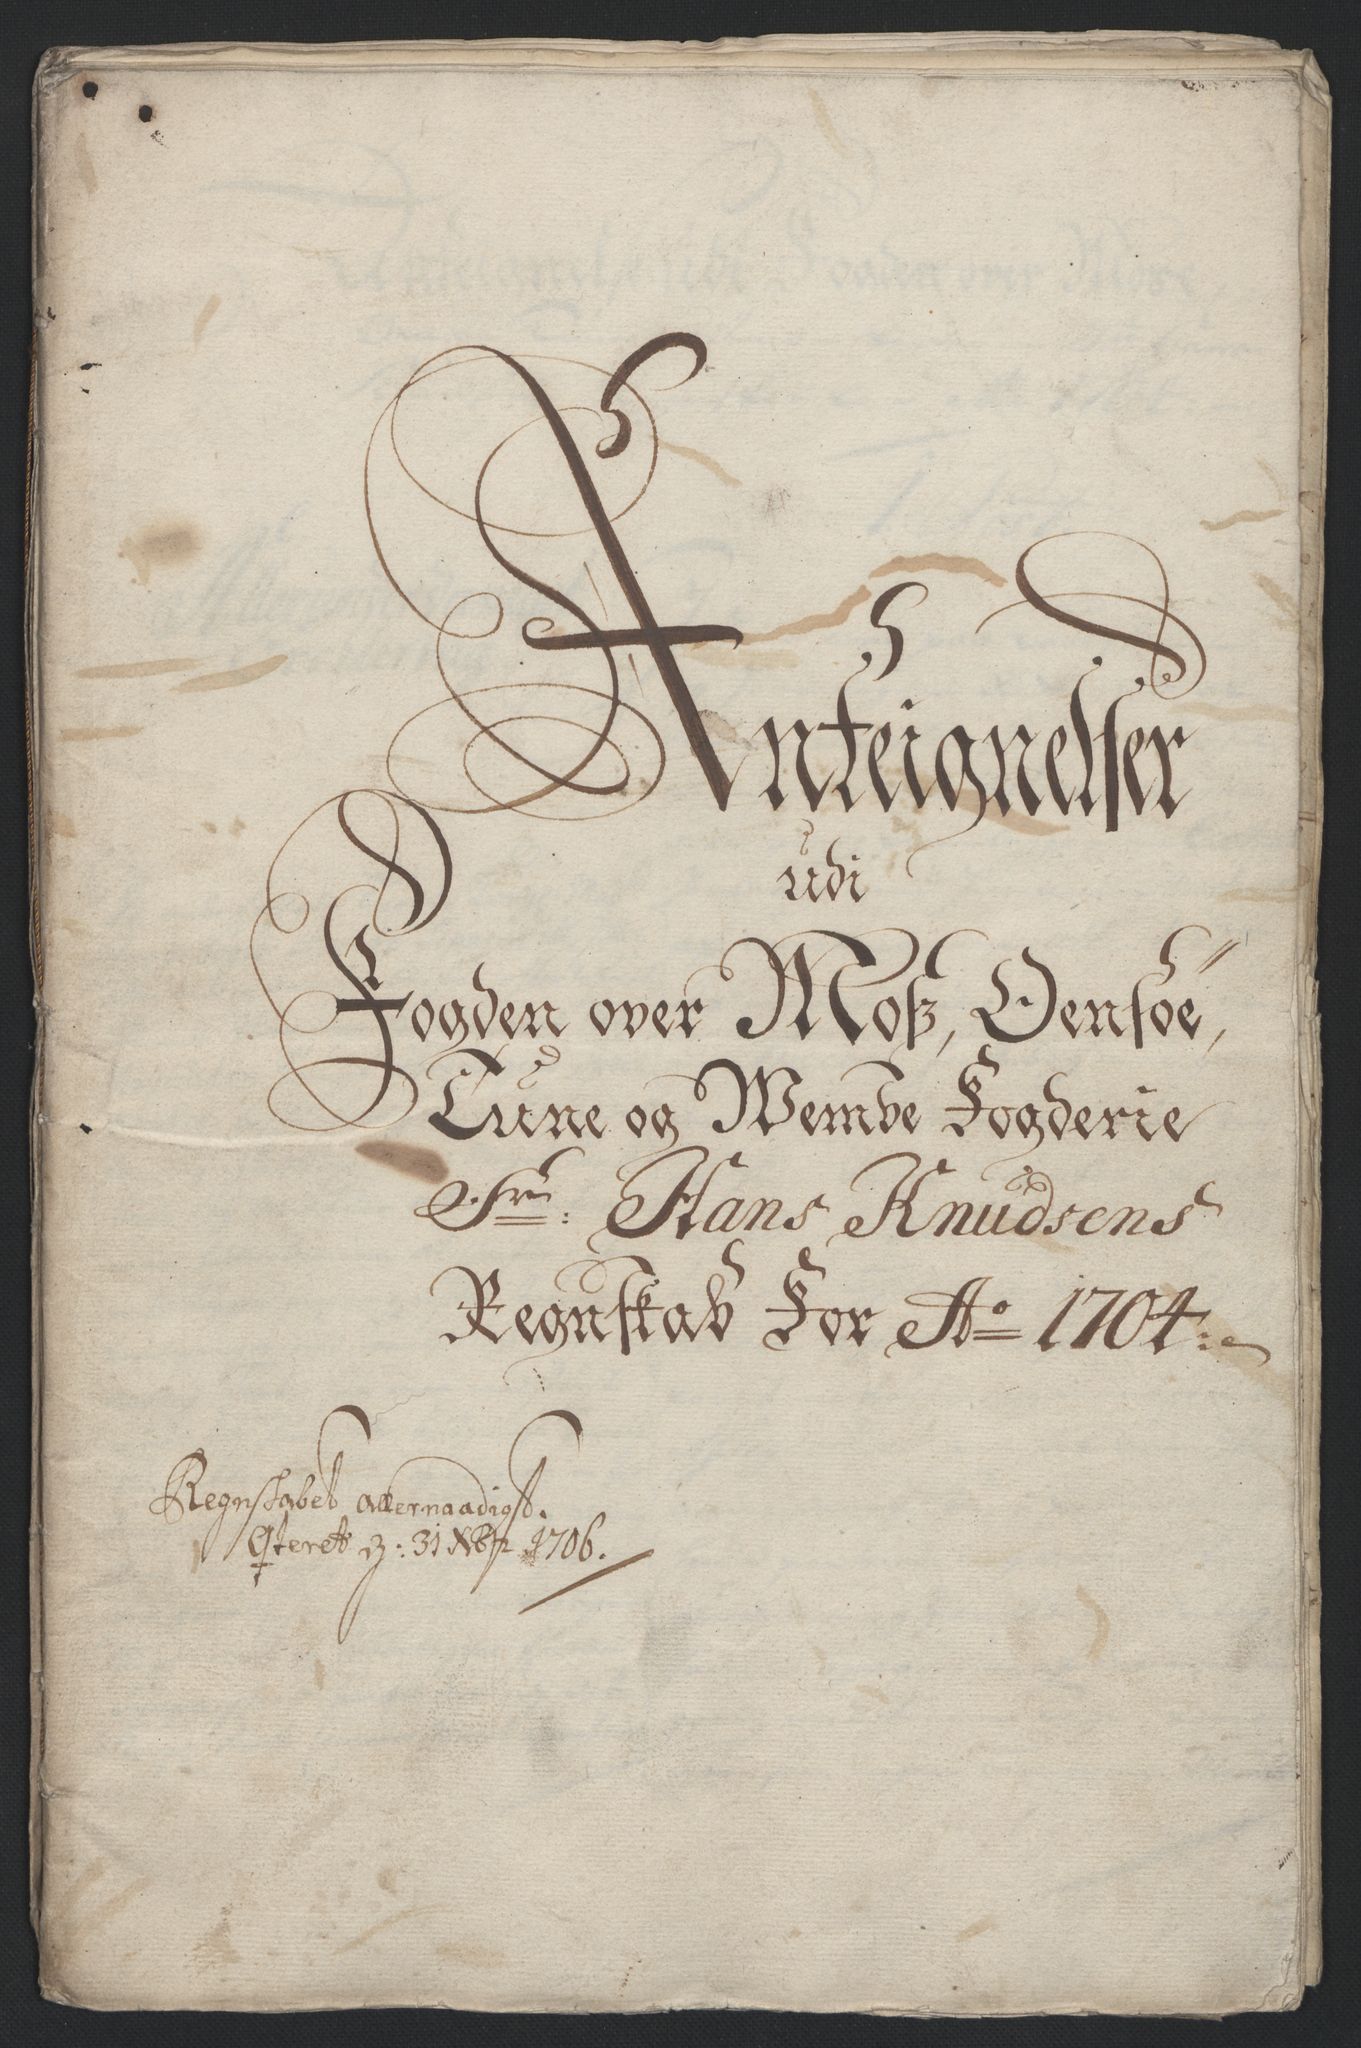 Anteignelser
udi
Fogden over Moß, Oensøe,
Tune og Wemve Fogderie
Sr: Hans Knudsens
Regnskab For Ao 1704:
Regnskabet allernaadigst.
Qteret d: 31 XBr 1706.